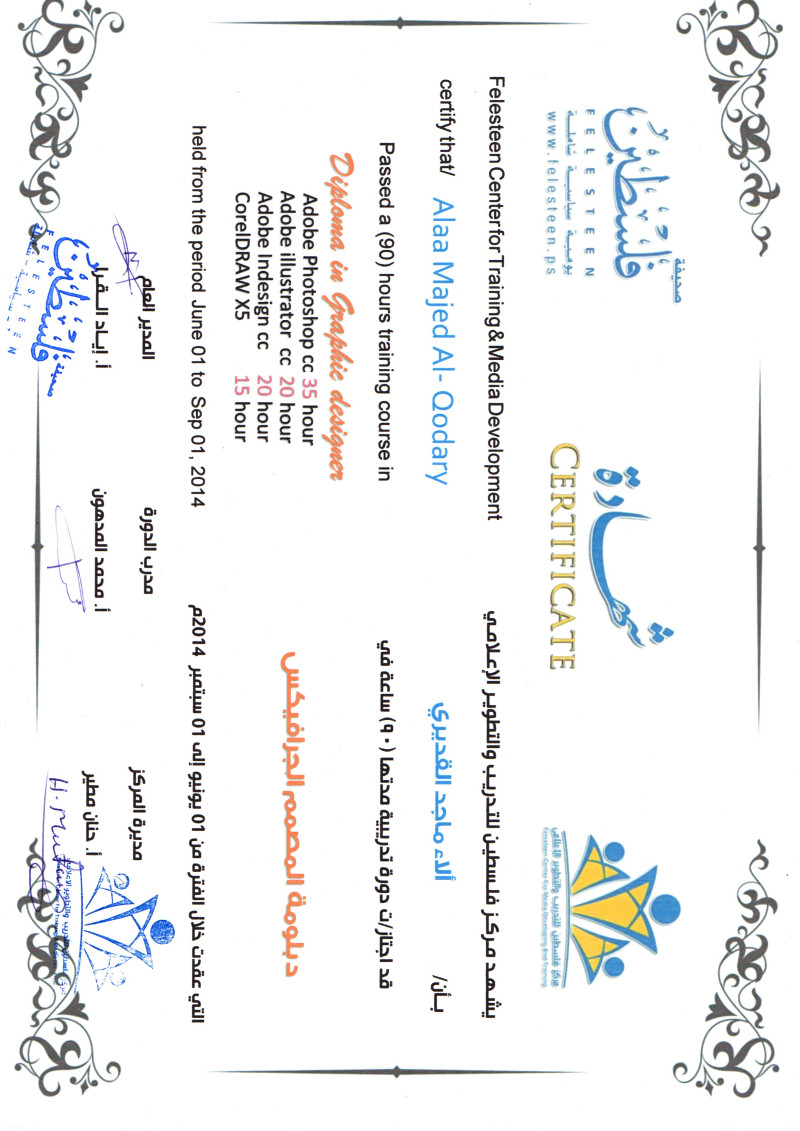 صحيفة
فلسطين
FELESTEEN
يومية سياسية شاملة
www.felesteen.ps
شهادة
CERTIFICATE
مركز فلسطين للتدريب والتطوير الإعلامي
Felesteen Center For Media Developing And Training
Felesteen Center for Training & Media Development
certify that/ Alaa Majed Al- Qodary
Passed a (90) hours training course in
Diploma in Graphic designer
Adobe Photoshop cc 35 hour
Adobe illustrator cc 20 hour
Adobe Indesign cc 20 hour
CorelDRAW X5 15 hour
held from the period June 01 to Sep 01, 2014
يشهد مركز فلسطين للتدريب والتطوير الإعلامي
بأن/ ألاء ماجد القديري
قد اجتاز/ت دورة تدريبية مدتها (٩٠) ساعة في
دبلومة المصمم الجرافيكس
التي عقدت خلال الفترة من 01 يونيو إلى 01 سبتمبر 2014م
المدير العام
أ. إياد القرا
صحيفة
فلسطين
FELESTEEN
مدرب الدورة
أ. محمد المدهون
مديرة المركز
أ. حنان مطير